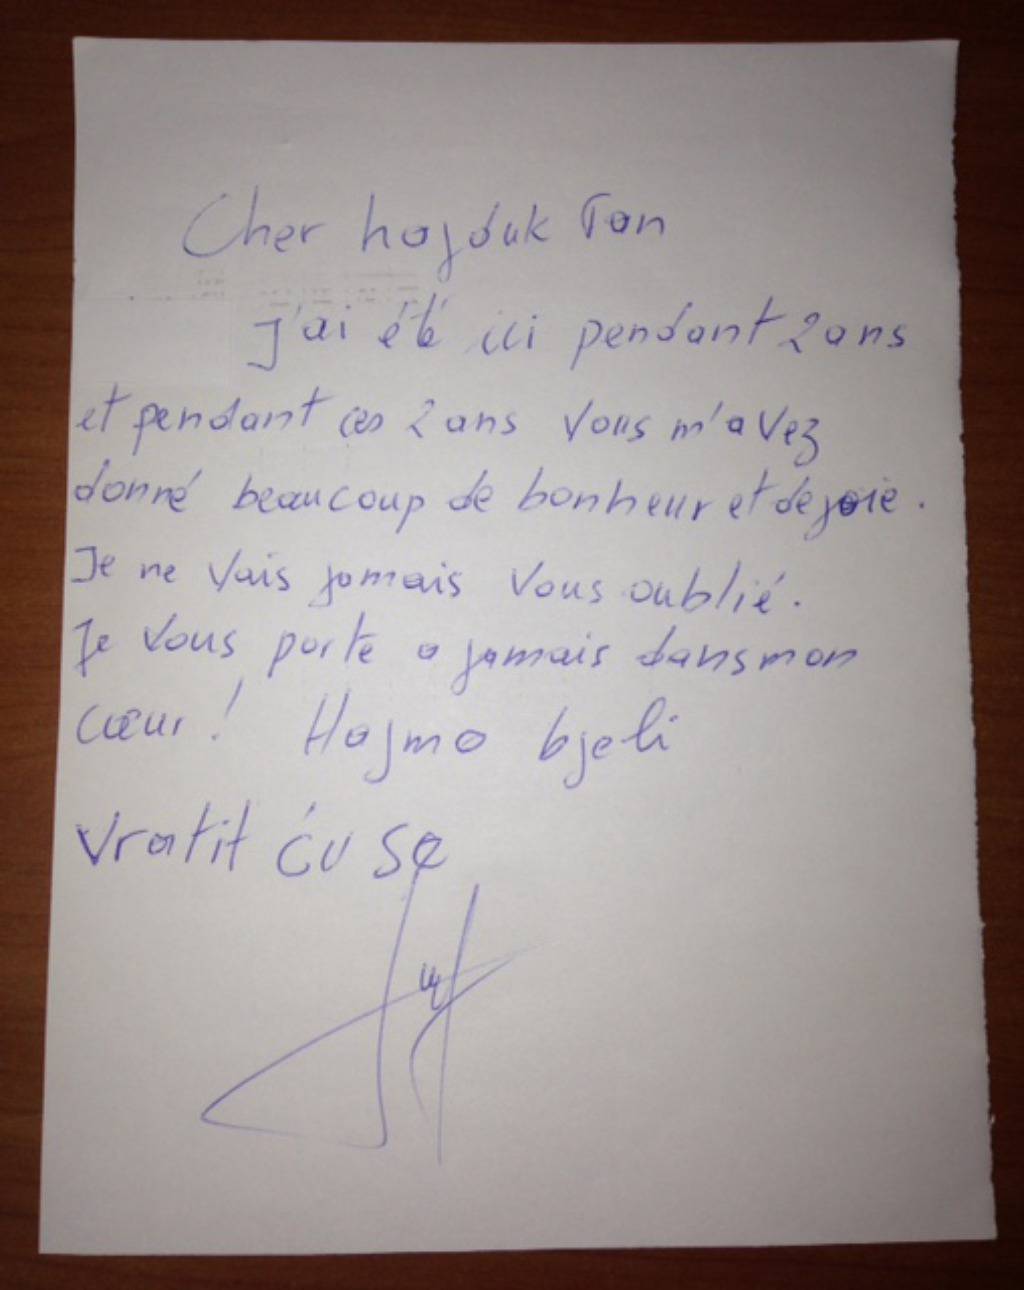 Cher hajduk Fan
J'ai été ici pendant 2 ans
et pendant ces 2 ans vous m'avez
donné beaucoup de bonheur et de joie.
Je ne vais jamais vous oublié.
Je vous porte a jamais dans mon
cœur! Hajmo bjeli
vratit ću se